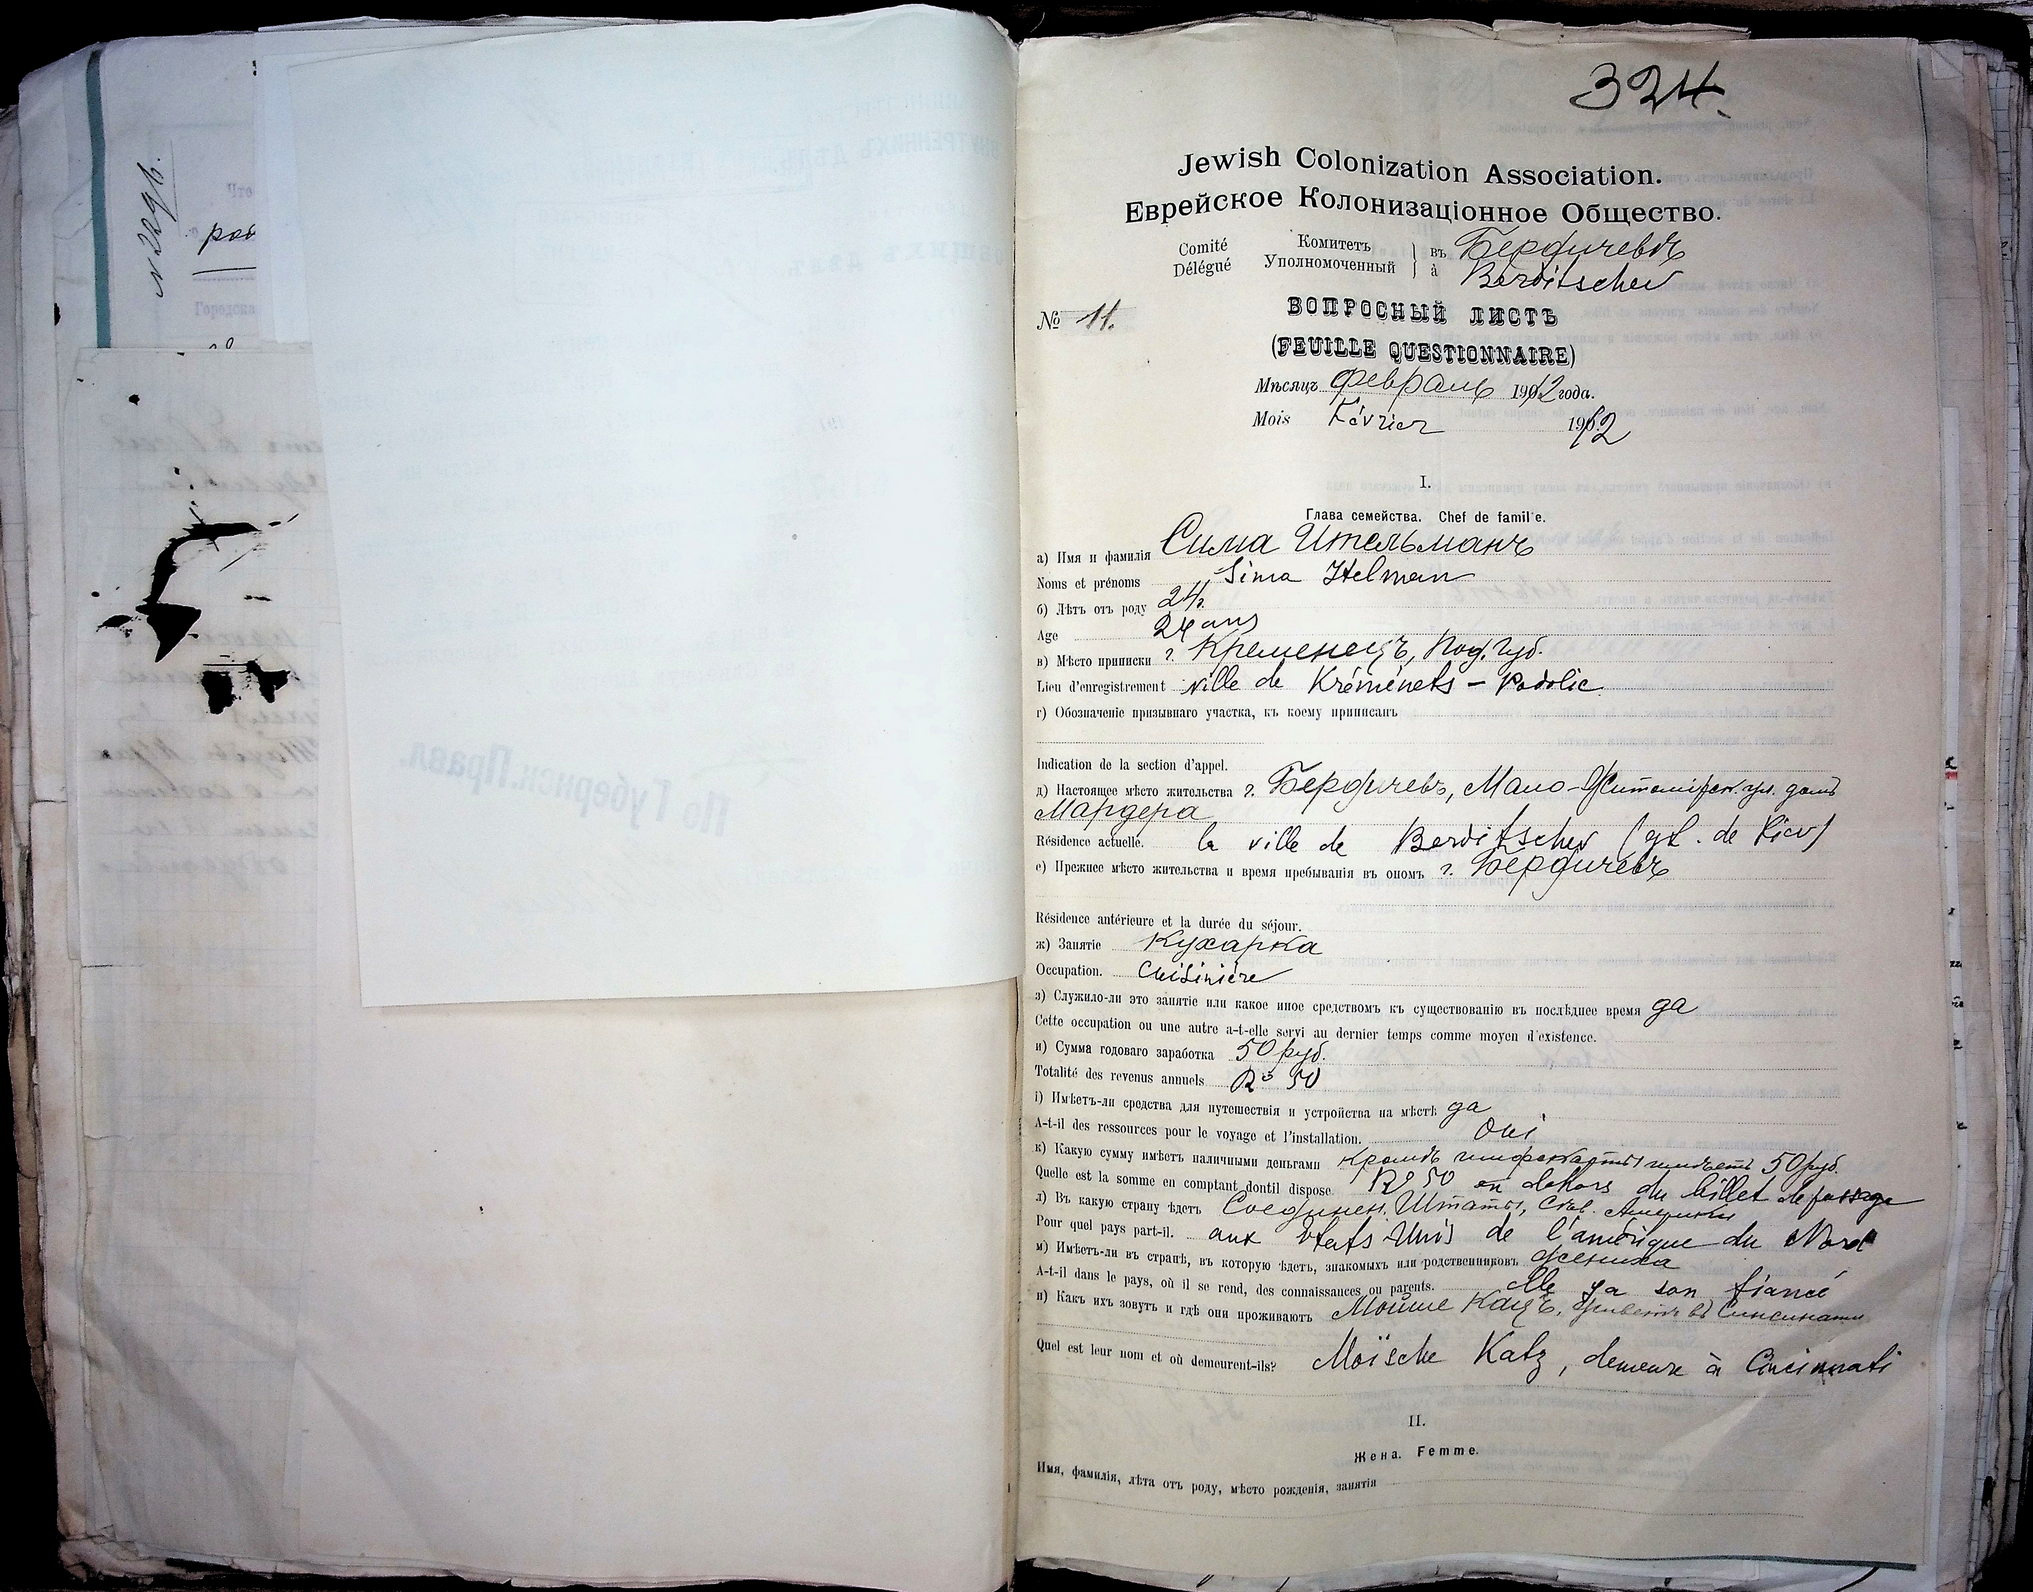 N 2296.
Что
Городска
По Губернск. Правл.
324.
Jewish Colonization Association.
Еврейское Колонизаціонное Общество.
Comité Комитетъ въ Бердичевѣ
Délégué Уполномоченный à Berditschev
№ 11.
ВОПРОСНЫЙ ЛИСТЪ
(FEUILLE QUESTIONNAIRE)
Мѣсяцъ февраль 1912 года.
Mois Février 1912
I.
Глава семейства. Chef de famille.
а) Имя и фамилія Сима Ительманъ
Noms et prénoms Sima Itelman
б) Лѣтъ отъ роду 24 г.
Age 24 ans
в) Мѣсто приписки г. Кременецъ, Под. губ.
Lieu d'enregistrement ville de Kréménets – Podolie
г) Обозначеніе призывнаго участка, къ коему приписанъ
Indication de la section d'appel.
д) Настоящее мѣсто жительства г. Бердичевъ, Мало-Житомірск. ул. домъ
Мардера
Résidence actuelle. la ville de Berditschev (gt. de Kiev)
е) Прежнее мѣсто жительства и время пребыванія въ ономъ г. Бердичевъ
Résidence antérieure et la durée du séjour.
ж) Занятіе Кухарка
Occupation. Cuisinière
з) Служило-ли это занятіе или какое иное средствомъ къ существованію въ послѣднее время да
Cette occupation ou une autre a-t-elle servi au dernier temps comme moyen d'existence.
и) Сумма годоваго заработка 50 руб.
Totalité des revenus annuels Rs 50
і) Имѣетъ-ли средства для путешествія и устройства на мѣстѣ да
A-t-il des ressources pour le voyage et l'installation. Oui
к) Какую сумму имѣетъ наличными деньгами кромѣ шифскарты имѣетъ 50 руб.
Quelle est la somme en comptant dontil dispose Rs 50 en dehors du billet de passage
л) Въ какую страну ѣдетъ Соединен. Штаты, Сѣв. Америки
Pour quel pays part-il. aux Etats Unis de l'amérique du Nord
м) Имѣетъ-ли въ странѣ, въ которую ѣдетъ, знакомыхъ или родственниковъ жениха
A-t-il dans le pays, où il se rend, des connaissances ou parents. elle y a son fiancé
н) Какъ ихъ зовутъ и гдѣ они проживаютъ Мойше Кацъ, живетъ въ Синсинати
Quel est leur nom et où demeurent-ils? Moïsche Katz, demeure à Cincinnati
II.
Жена. Femme.
Имя, фамилія, лѣта отъ роду, мѣсто рожденія, занятія